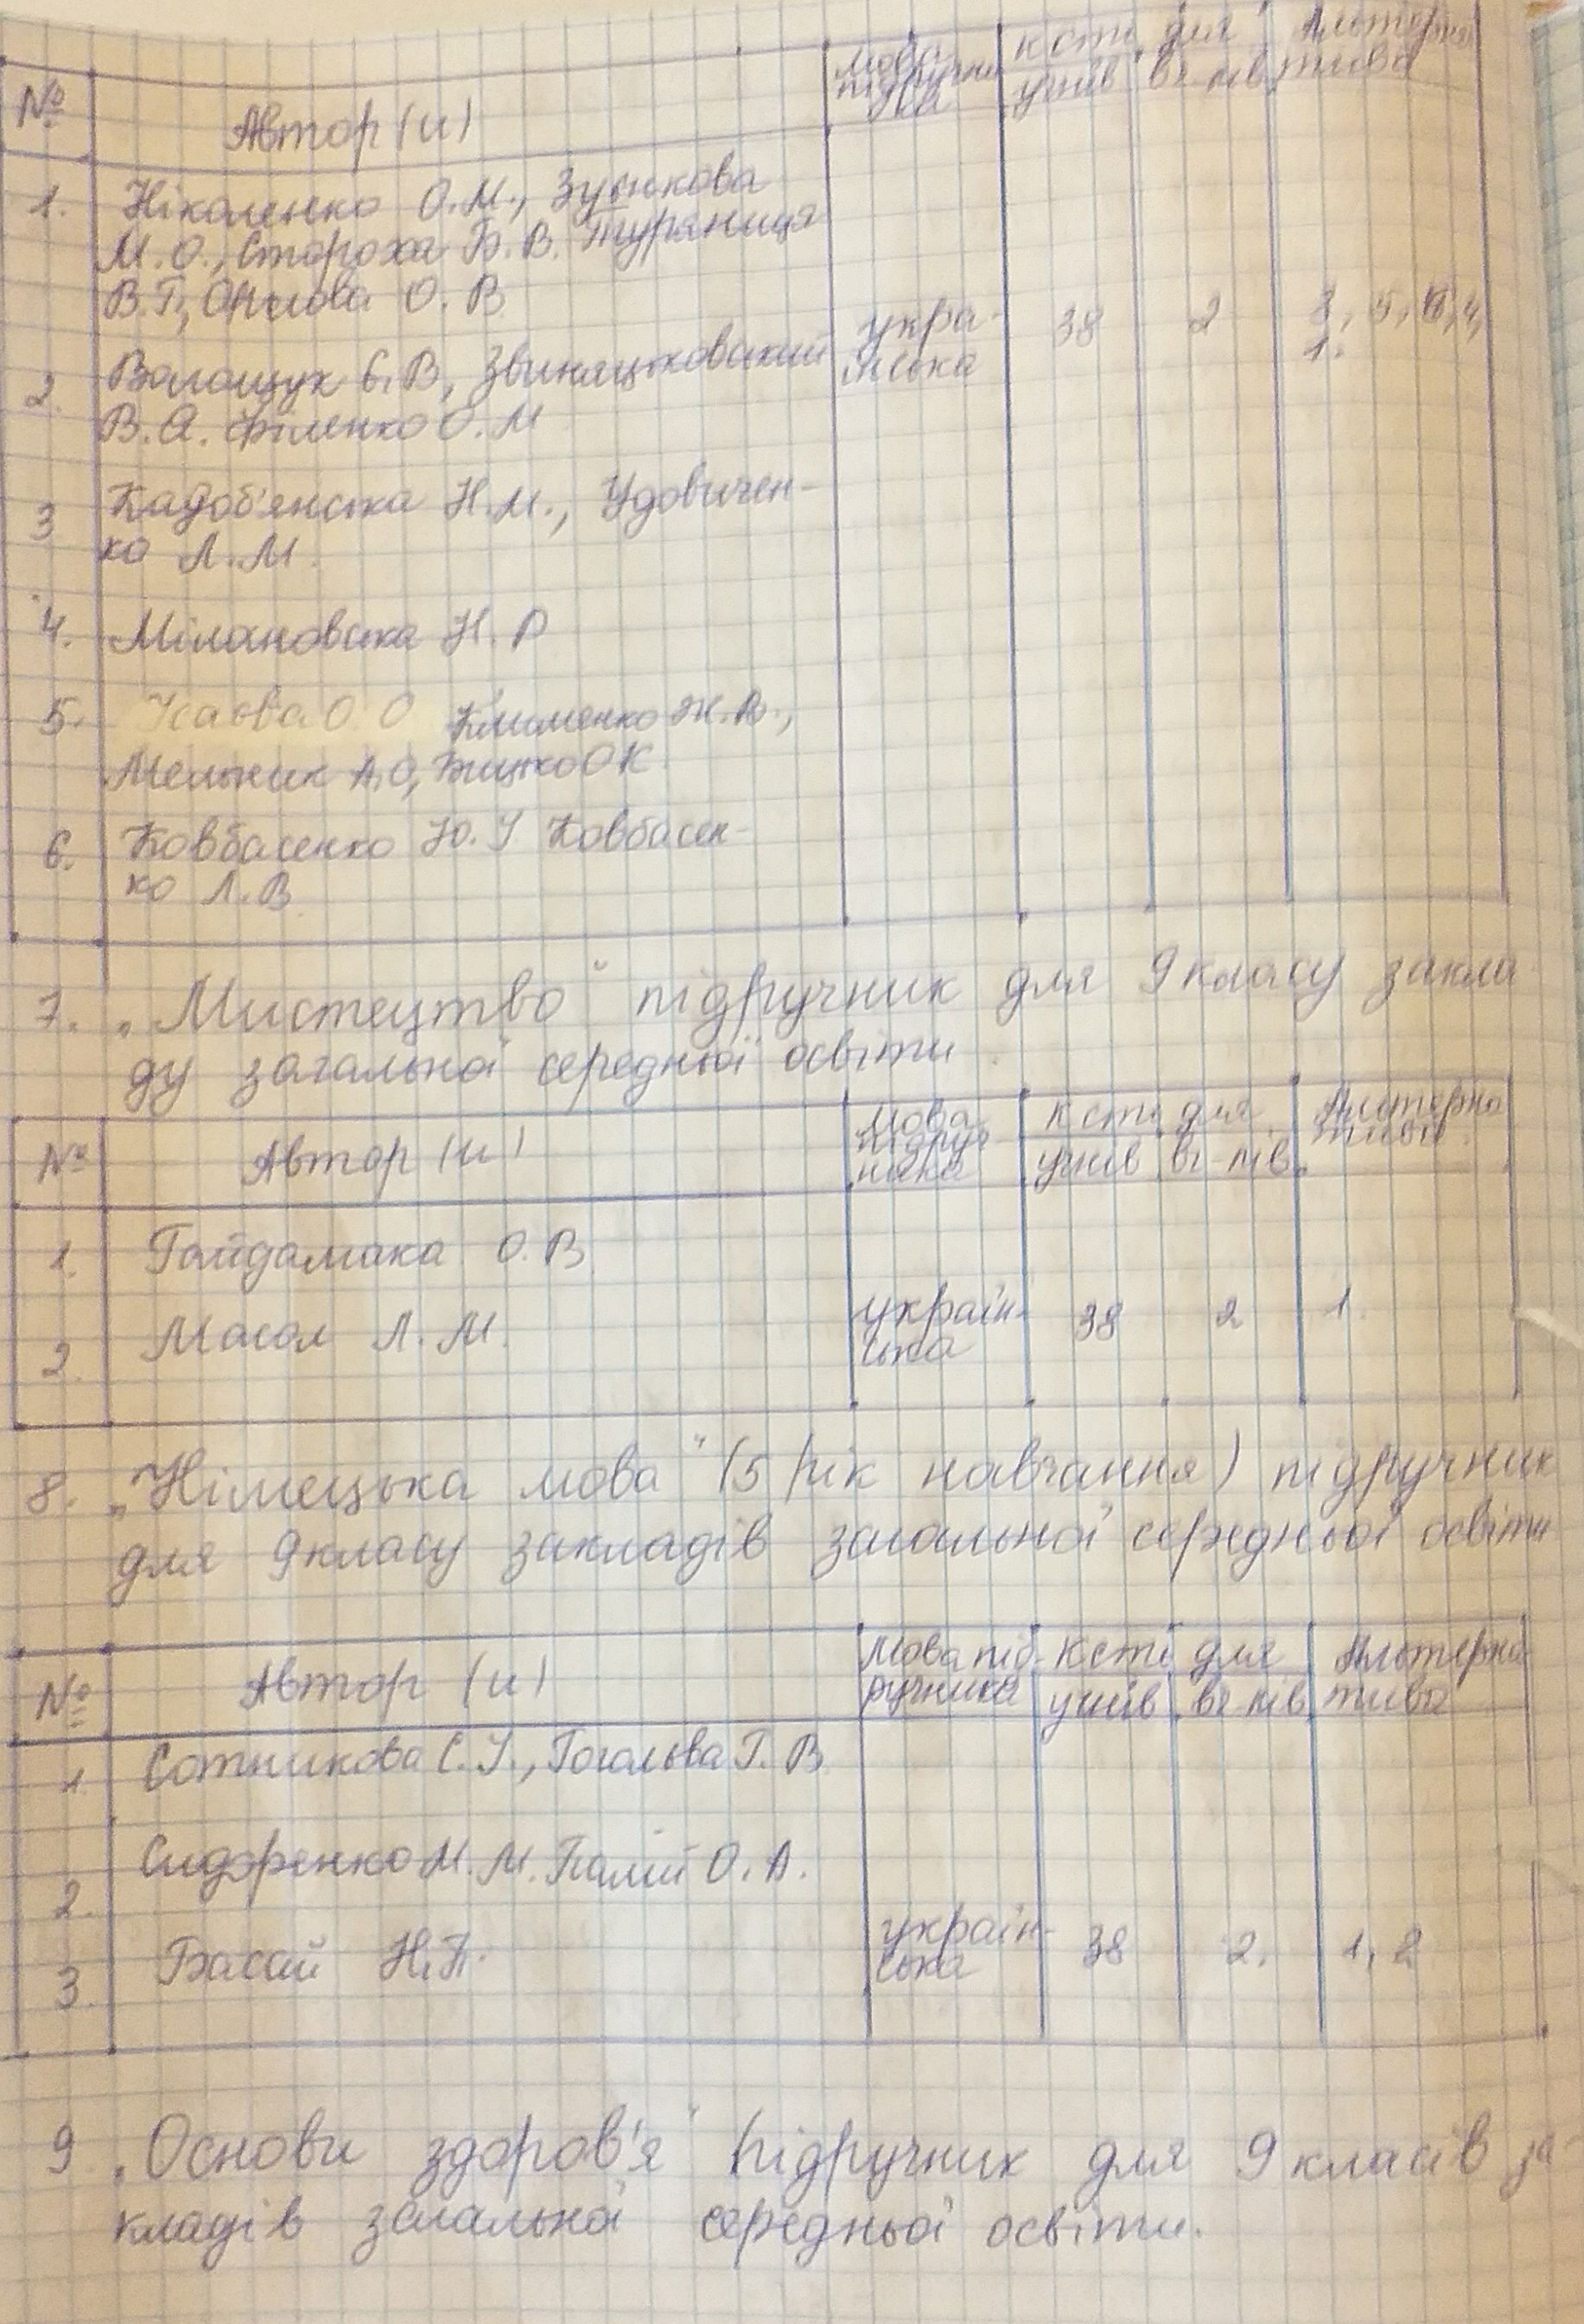 № Автор (и) мова підручника К сть для учнів вч-лів Альтернатива
1. Ніколенко О.М., Зуєнкова
М.О., Стороха Б.В. Туряниця
В.Г., Орлова О.В
2. Волощук Є.В, Звиняцьковський
В.Я. Філенко О.М
укра- 38 2 3, 5, 6, 4,
їнська 1.
3 Кадоб'янська Н.М., Удовичен-
ко Л.М.
4. Міляновська Н.Р
5. Ісаєва О.О Клименко Ж.В.,
Мельник А,О, Бицько О К
6. Ковбасенко Ю.І Ковбасен-
ко Л.В
7. „Мистецтво" підручник для 9 класу закла
ду загальної середньої освіти
№ Автор (и) мова підручника К сть для учнів вч-лів Альтернатива
1. Гайдамака О.В
2. Масол Л.М.
україн- 38 2 1.
ська
8. „Німецька мова" (5 рік навчання) підручник
для 9 класу закладів загальної середньої освіти
№ Автор (и) Мова підручника К сть для учнів вч-лів Альтернатива
1 Сотникова С.І., Гоголєва Г.В
2. Сидоренко М.М. Палій О.А.
3. Басай Н.П.
україн- 38 2. 1, 2
ська
9 „Основи здоров'я" підручник для 9 класів за-
кладів загальної середньої освіти.